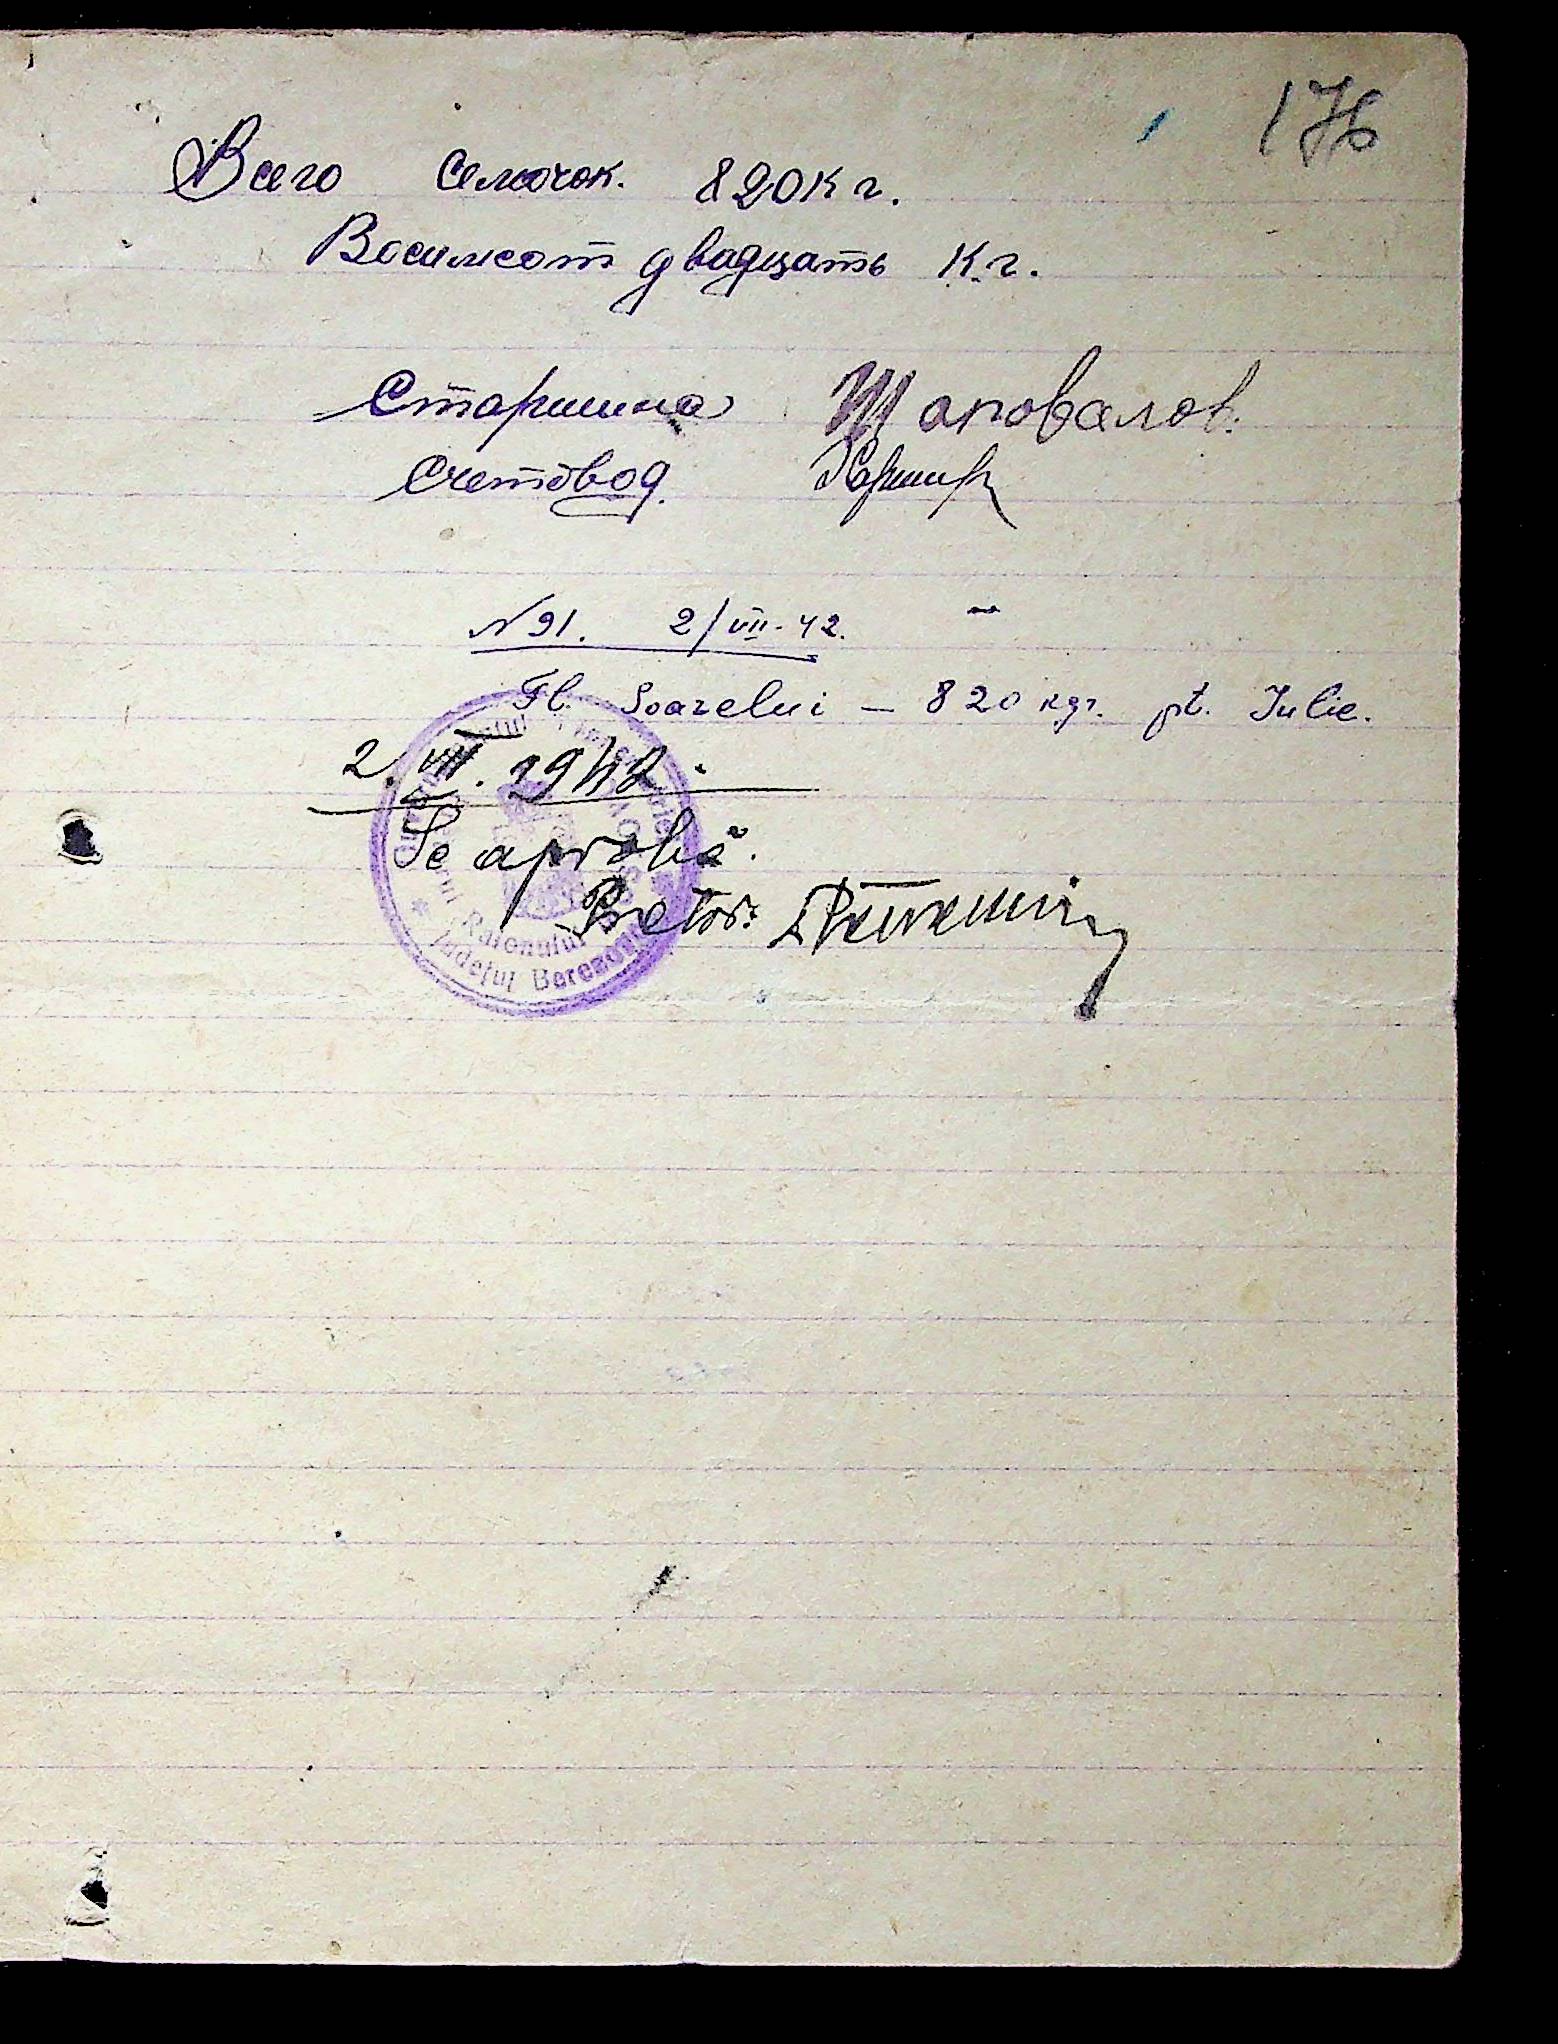 176
Всего семочок. 820 кг.
Восимсот двадцать кг.
Старшина Шаповалов.
Счетовод
N 91. 2/VII-42.
Fl. Soarelui — 820 kgr. pt. Iulie.
2. VII. 1942.
Se aprobă.
Pretor
Raionului
Județul Berezovca